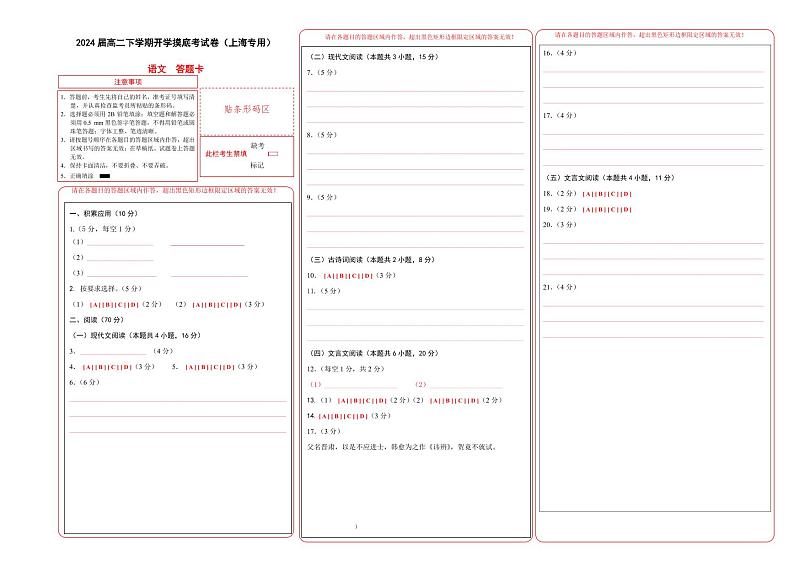 2024 届高二下学期开学摸底考试卷（上海专用）
语文 答题卡
注意事项
1．答题前，考生先将自己的姓名，准考证号填写清
楚，并认真检查监考员所粘贴的条形码。
2．选择题必须用 2B 铅笔填涂；填空题和解答题必
须用 0.5 mm 黑色签字笔答题，不得用铅笔或圆
珠笔答题；字体工整、笔迹清晰。
3．请按题号顺序在各题目的答题区域内作答，超出
区域书写的答案无效；在草稿纸、试题卷上答题
无效。
4．保持卡面清洁，不要折叠、不要弄破。
5．正确填涂
贴条形码区
此栏考生禁填
缺考
标记
请在各题目的答题区域内作答，超出黑色矩形边框限定区域的答案无效！
一、积累应用（10 分）
1.（5 分，每空 1 分）
（1）____________ ____________
（2）____________
（3）____________ ____________
2. 按要求选择。（5 分）
（1） [A] [B] [C] [D]（2 分） （2） [A] [B] [C] [D]（3 分）
二、阅读（70 分）
（一）现代文阅读（本题共 4 小题，16 分）
3．____________ （4 分）
4． [A] [B] [C] [D]（3 分） 5． [A] [B] [C] [D]（3 分）
6．（6 分）
请在各题目的答题区域内作答，超出黑色矩形边框限定区域的答案无效！
（二）现代文阅读（本题共 3 小题，15 分）
7．（5 分）
8．（5 分）
9．（5 分）
（三）古诗词阅读（本题共 2 小题，8 分）
10． [A] [B] [C] [D]（3 分）
11．（5 分）
（四）文言文阅读（本题共 6 小题，20 分）
12．（每空 1 分，共 2 分）
（1）____________ （2）____________
13．（1） [A] [B] [C] [D]（2 分）（2） [A] [B] [C] [D]（2 分）
14． [A] [B] [C] [D]（3 分）
17．（3 分）
父名晋肃，以是不应进士，韩愈为之作《讳辨》，贺竟不就试。
）
请在各题目的答题区域内作答，超出黑色矩形边框限定区域的答案无效！
16．（4 分）
17．（4 分）
（五）文言文阅读（本题共 4 小题，11 分）
18．（2 分） [A] [B] [C] [D]
19．（2 分） [A] [B] [C] [D]
20．（3 分）
21．（4 分）